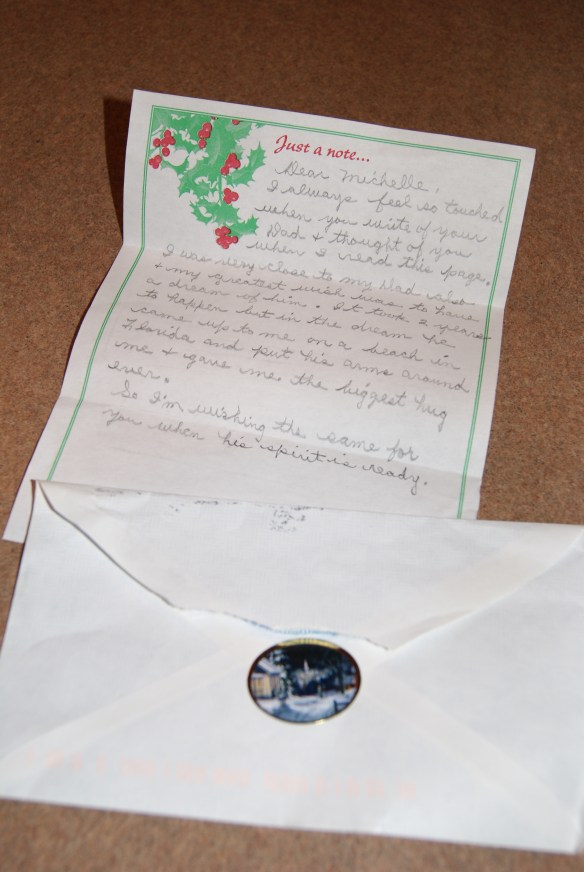 Just a note...
Dear Michelle,
I always feel so touched
when you write of your
Dad & thought of you
when I read this page.
I was very close to my Dad also
& my greatest wish was to have
a dream of him. It took 2 years
to happen but in the dream he
came up to me on a beach in
Florida and put his arms around
me & gave me the biggest hug
ever.
So I'm wishing the same for
you when his spirit is ready.